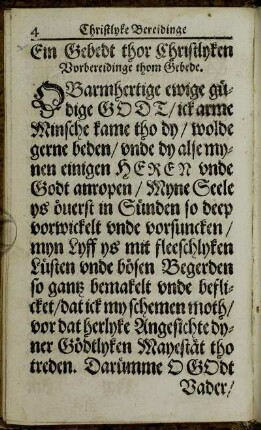 4 Christlyke Bereidinge
Ein Gebedt thor Christlyken
Vorbereidinge thom Gebede.
O Barmhertige ewige gü-
dige GODT / ick arme
Minsche kame tho dy / wolde
gerne beden / vnde dy alse my-
nen einigen HEREN vnde
Godt anropen / Myne Seele
ys öuerst in Sünden so deep
vorwickelt vnde vorsuncken /
myn Lyff ys mit fleeschlyken
Lüsten vnde bösen Begerden
so gantz bemakelt vnde befli-
cket / dat ick my schemen moth /
vor dat herlyke Angesichte dy-
ner Gödtlyken Mayestät tho
treden. Darümme O GOdt
Vader /